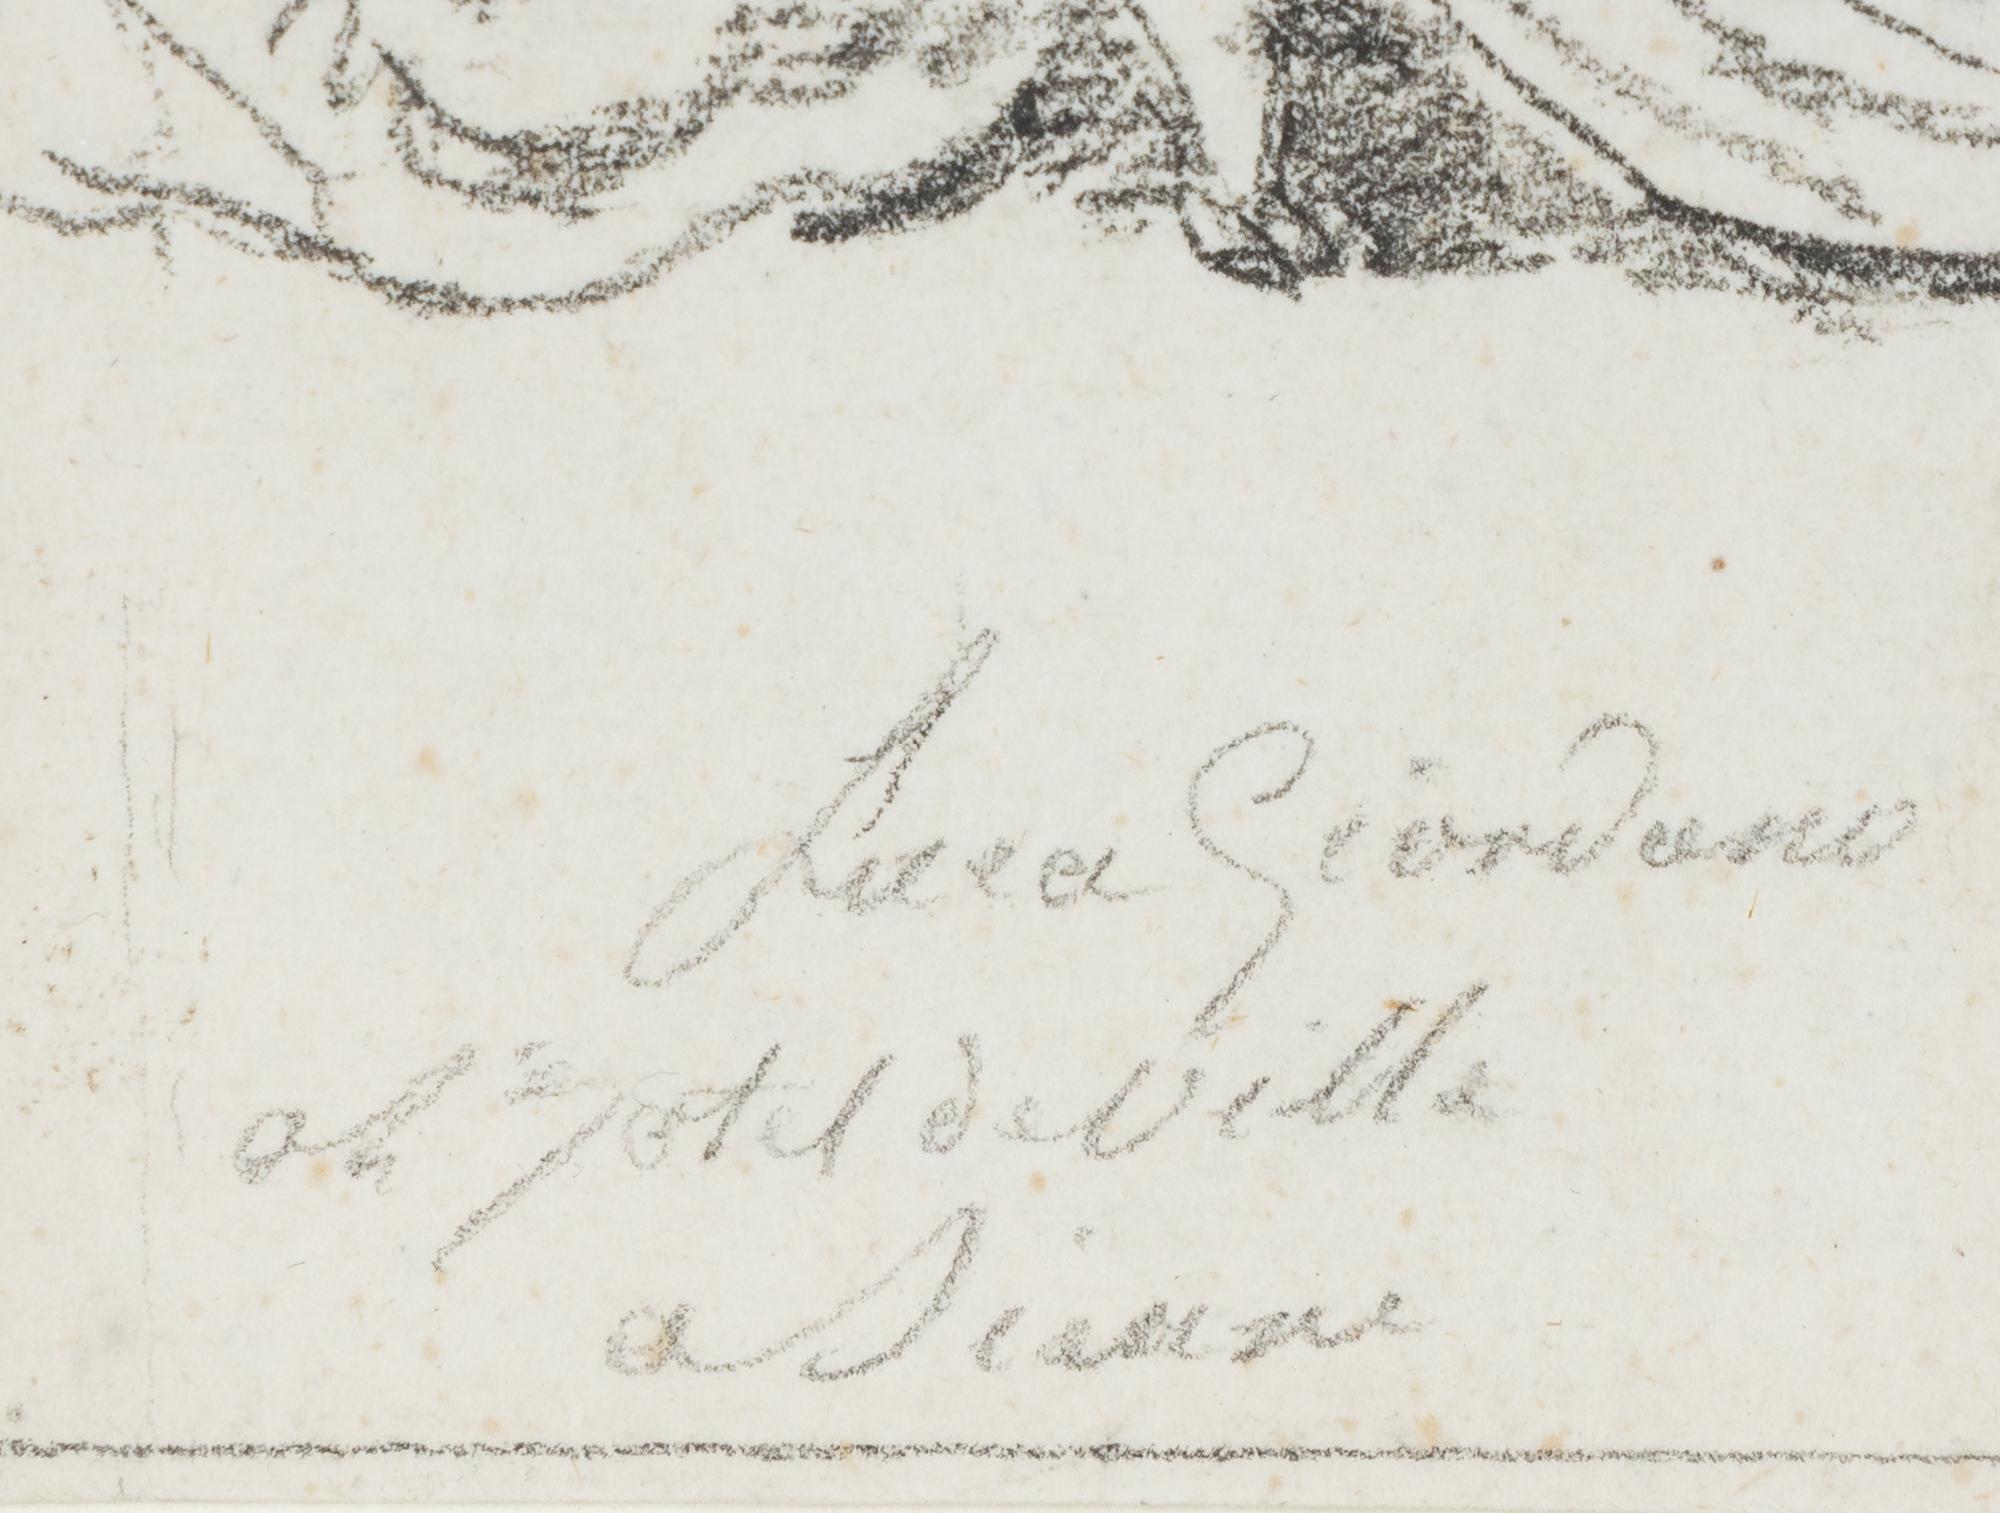 Luca Giordano
a l'hotel de Ville
a Sienne